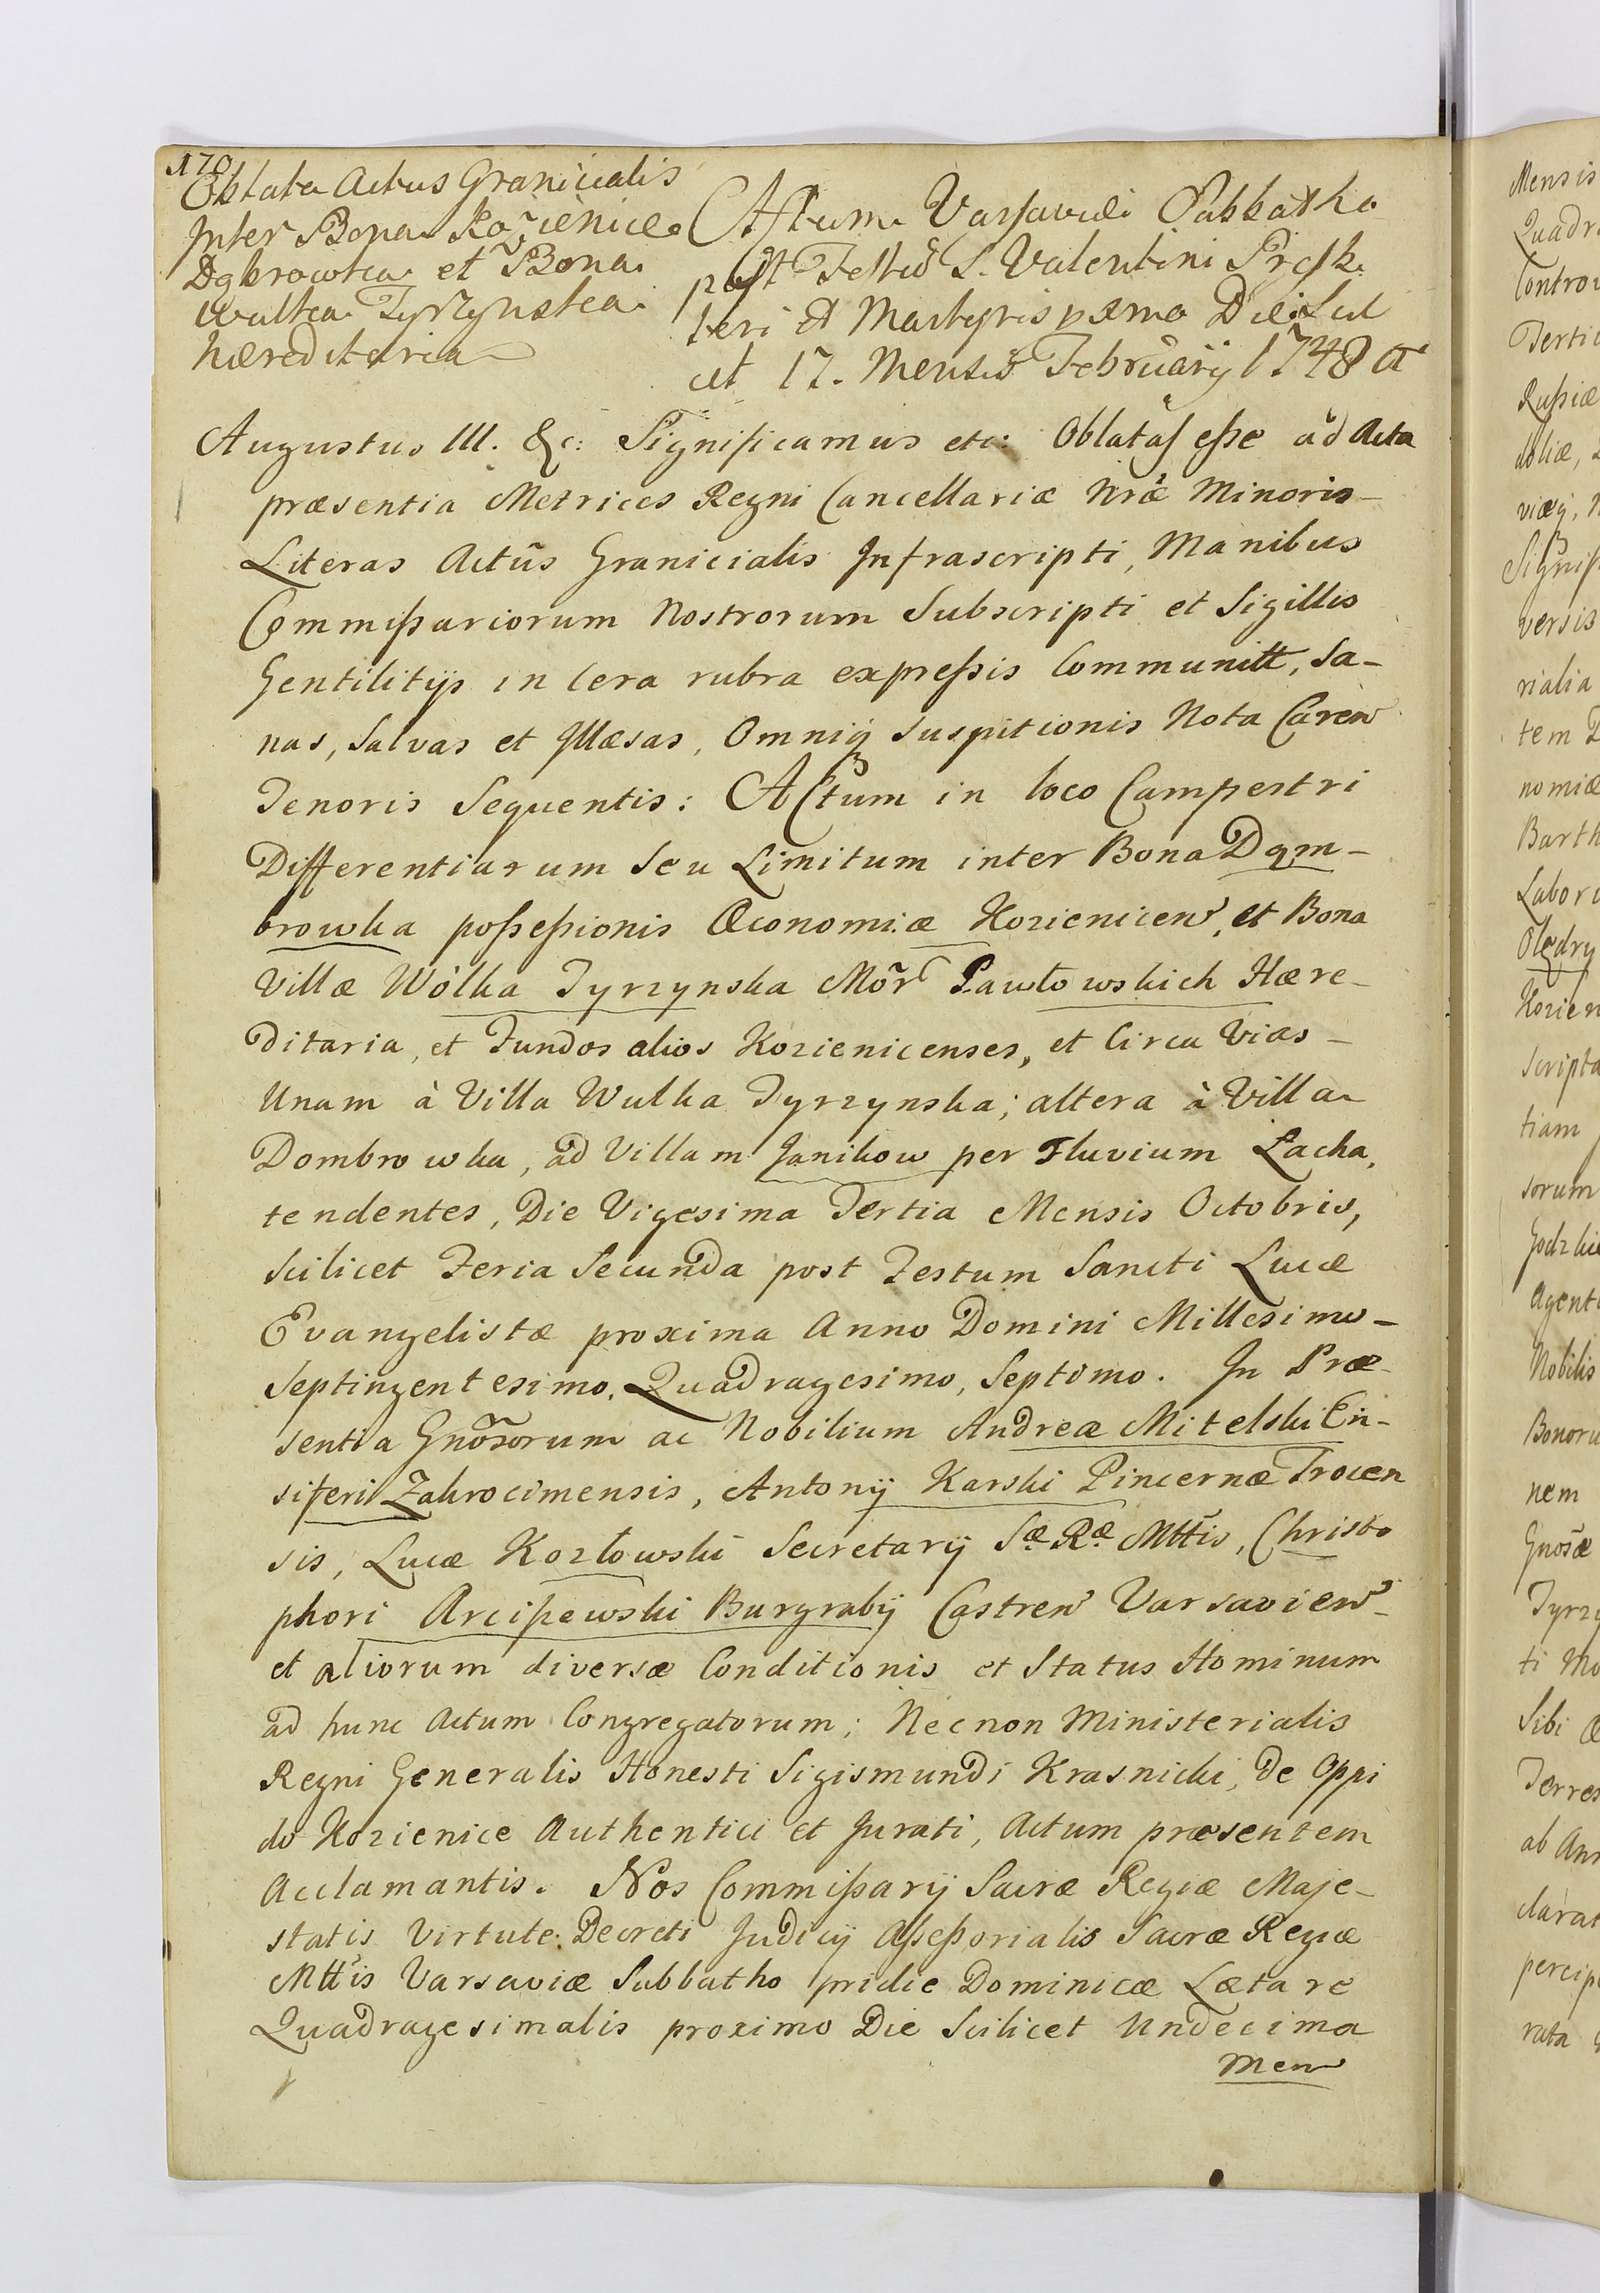 170
Oblata Actus Granicialis
Inter Bona Kozienice
Dąbrowka et Bona
Wulka Tyrzynska
hæreditaria
Actum Varsaviæ Sabbatho
post Festū S. Valentini Presb.
teri et Martyris pxmo Die Scil
cet 17. Mensis Februarij 1748 a
Augustus III. &c: Significamus etc: Oblatas esse ad Acta
præsentia Metrices Regni Cancellariæ Nræ Minoris
Literas Actûs Granicialis Infrascripti, Manibus
Commissariorum Nostrorum Subscripti et Sigillis
Gentilitijs in Cera rubra expressis Communitt, Sa-
nas, Salvas et Illæsas, Omniq Suspitionis Nota Caren
Tenoris Sequentis: Actum in loco Campestri
Differentiarum Seu Limitum inter Bona Dąm-
browka possessionis Œconomiæ Kozienicen, et Bona
Villæ Wólka Tyrzynska Mōr Pawłowskich Hære-
ditaria, et Fundos alios Kozienicenses, et Circa Vias-
Unam à Villa Wulka Tyrzynska; altera à Villa
Dombrowka, ad Villam Janikow per Fluvium Łacha,
tendentes, Die Vigesima Tertia Mensis Octobris,
Scilicet Feria Secunda post Festum Sancti Lucæ
Evangelistæ proxima Anno Domini Millesimo-
Septingentesimo, Quadragesimo, Septimo. In Præ-
sentia Gnōsorum ac Nobilium Andreæ Mitelski En-
siferi Zakrocimensis, Antonij Karski Pincernæ Trocen
sis, Lucæ Kozłowski Secretarij Sæ Ræ Mttis, Christo
phori Arciszewski Burgrabij Castren Varsavien-
et aliorum diversæ Conditionis et Status Hominum
ad hunc Actum Congregatorum; Necnon Ministerialis
Regni Generalis Honesti Sigismundi Krasnicki, De Oppi
do Kozienice Authentici et Jurati, Actum præsentem
Acclamantis. Nos Commissarij Sacræ Regiæ Maje-
statis Virtute Decreti Judicij Assessorialis Sacræ Regiæ
Mttis Varsaviæ Sabbatho pridie Dominicæ Lætare
Quadragesimalis proximo Die Scilicet Undecima
Men
Mensis
Tertia
Russiæ
versis
rialia
tem
nomiæ
Barth
Olędry
Kozien
Scripta
tiam
sorum
Agent
Nobilis
Bonoru
nem
Gnosæ
Tyrzy
ti Mo
Sibi
Terres
ab Ann
clarat
percip
rata